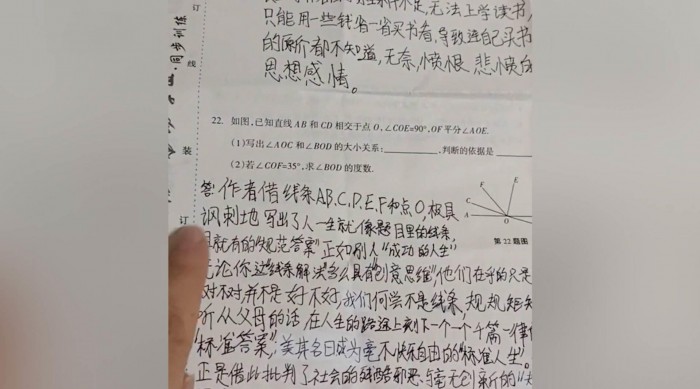 无法上学读书
只能用一些钱省一省买书看,导致连自己买书
的原价都不知道,无奈,愤恨,悲愤的
思想感情。
订
线
同步训练
22. 如图,已知直线AB和CD相交于点O,∠COE=90°,OF平分∠AOE.
(1)写出∠AOC和∠BOD的大小关系:________,判断的依据是________
(2)若∠COF=35°,求∠BOD的度数.
装
订
F
E
C
A
O
第22题图
答:作者借线条AB、C、D、E、F和点O,极具
讽刺地写出了人一生就像题目里的线条,
就有的"规范答案"正如别人"成功的人生"
无论你这"线条解法"多么具有"创意思维",他们在乎的只是
对不对,并不是好不好,我们何尝不是线条,规规矩矩
听从父母的话,在人生的路途上刻下一个一个千篇一律的
"标准答案",美其名曰成为毫不快乐自由的"标准人生"。
正是借此批判了社会的残酷邪恶与毫无创新的